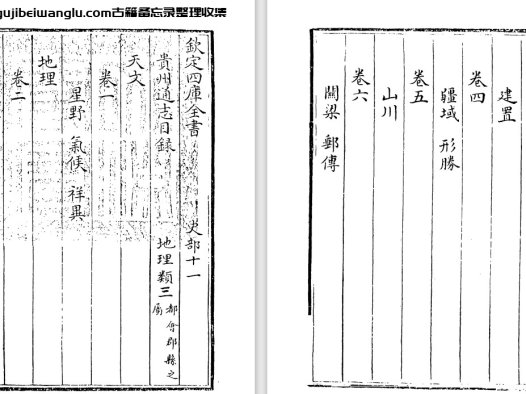 gujibeiwanglu.com古籍备忘录整理收集
欽定四庫全書 史部十一
貴州通志目録 地理類三 都會郡縣之屬
天文
卷一
星野 氣候 祥異
地理
卷二
建置
卷四
疆域 形勝
卷五
山川
卷六
關梁 郵傳